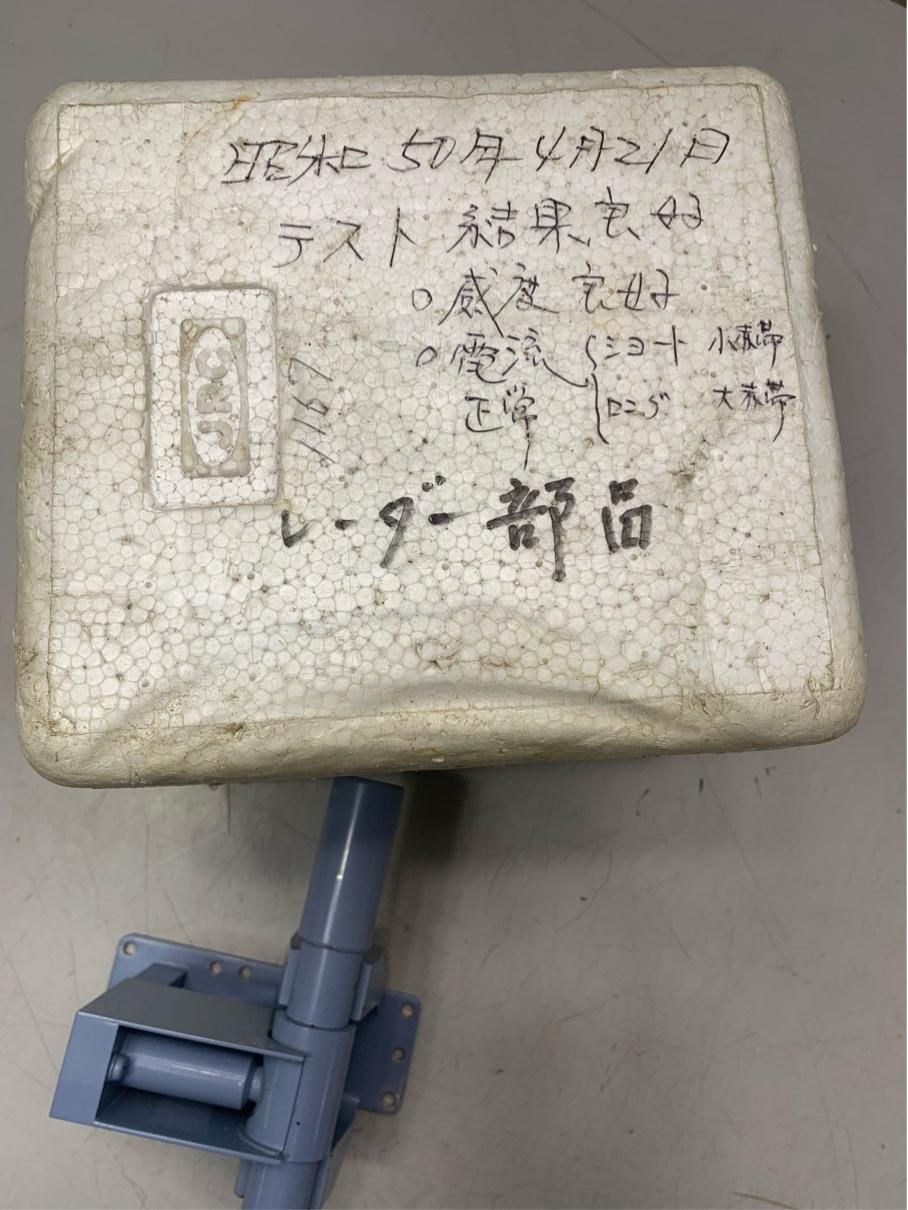 昭和50年4月21日
テスト結果良好
○感度良好
○電流 ショート
正常 ロング
JRC
1167
レーダー部品